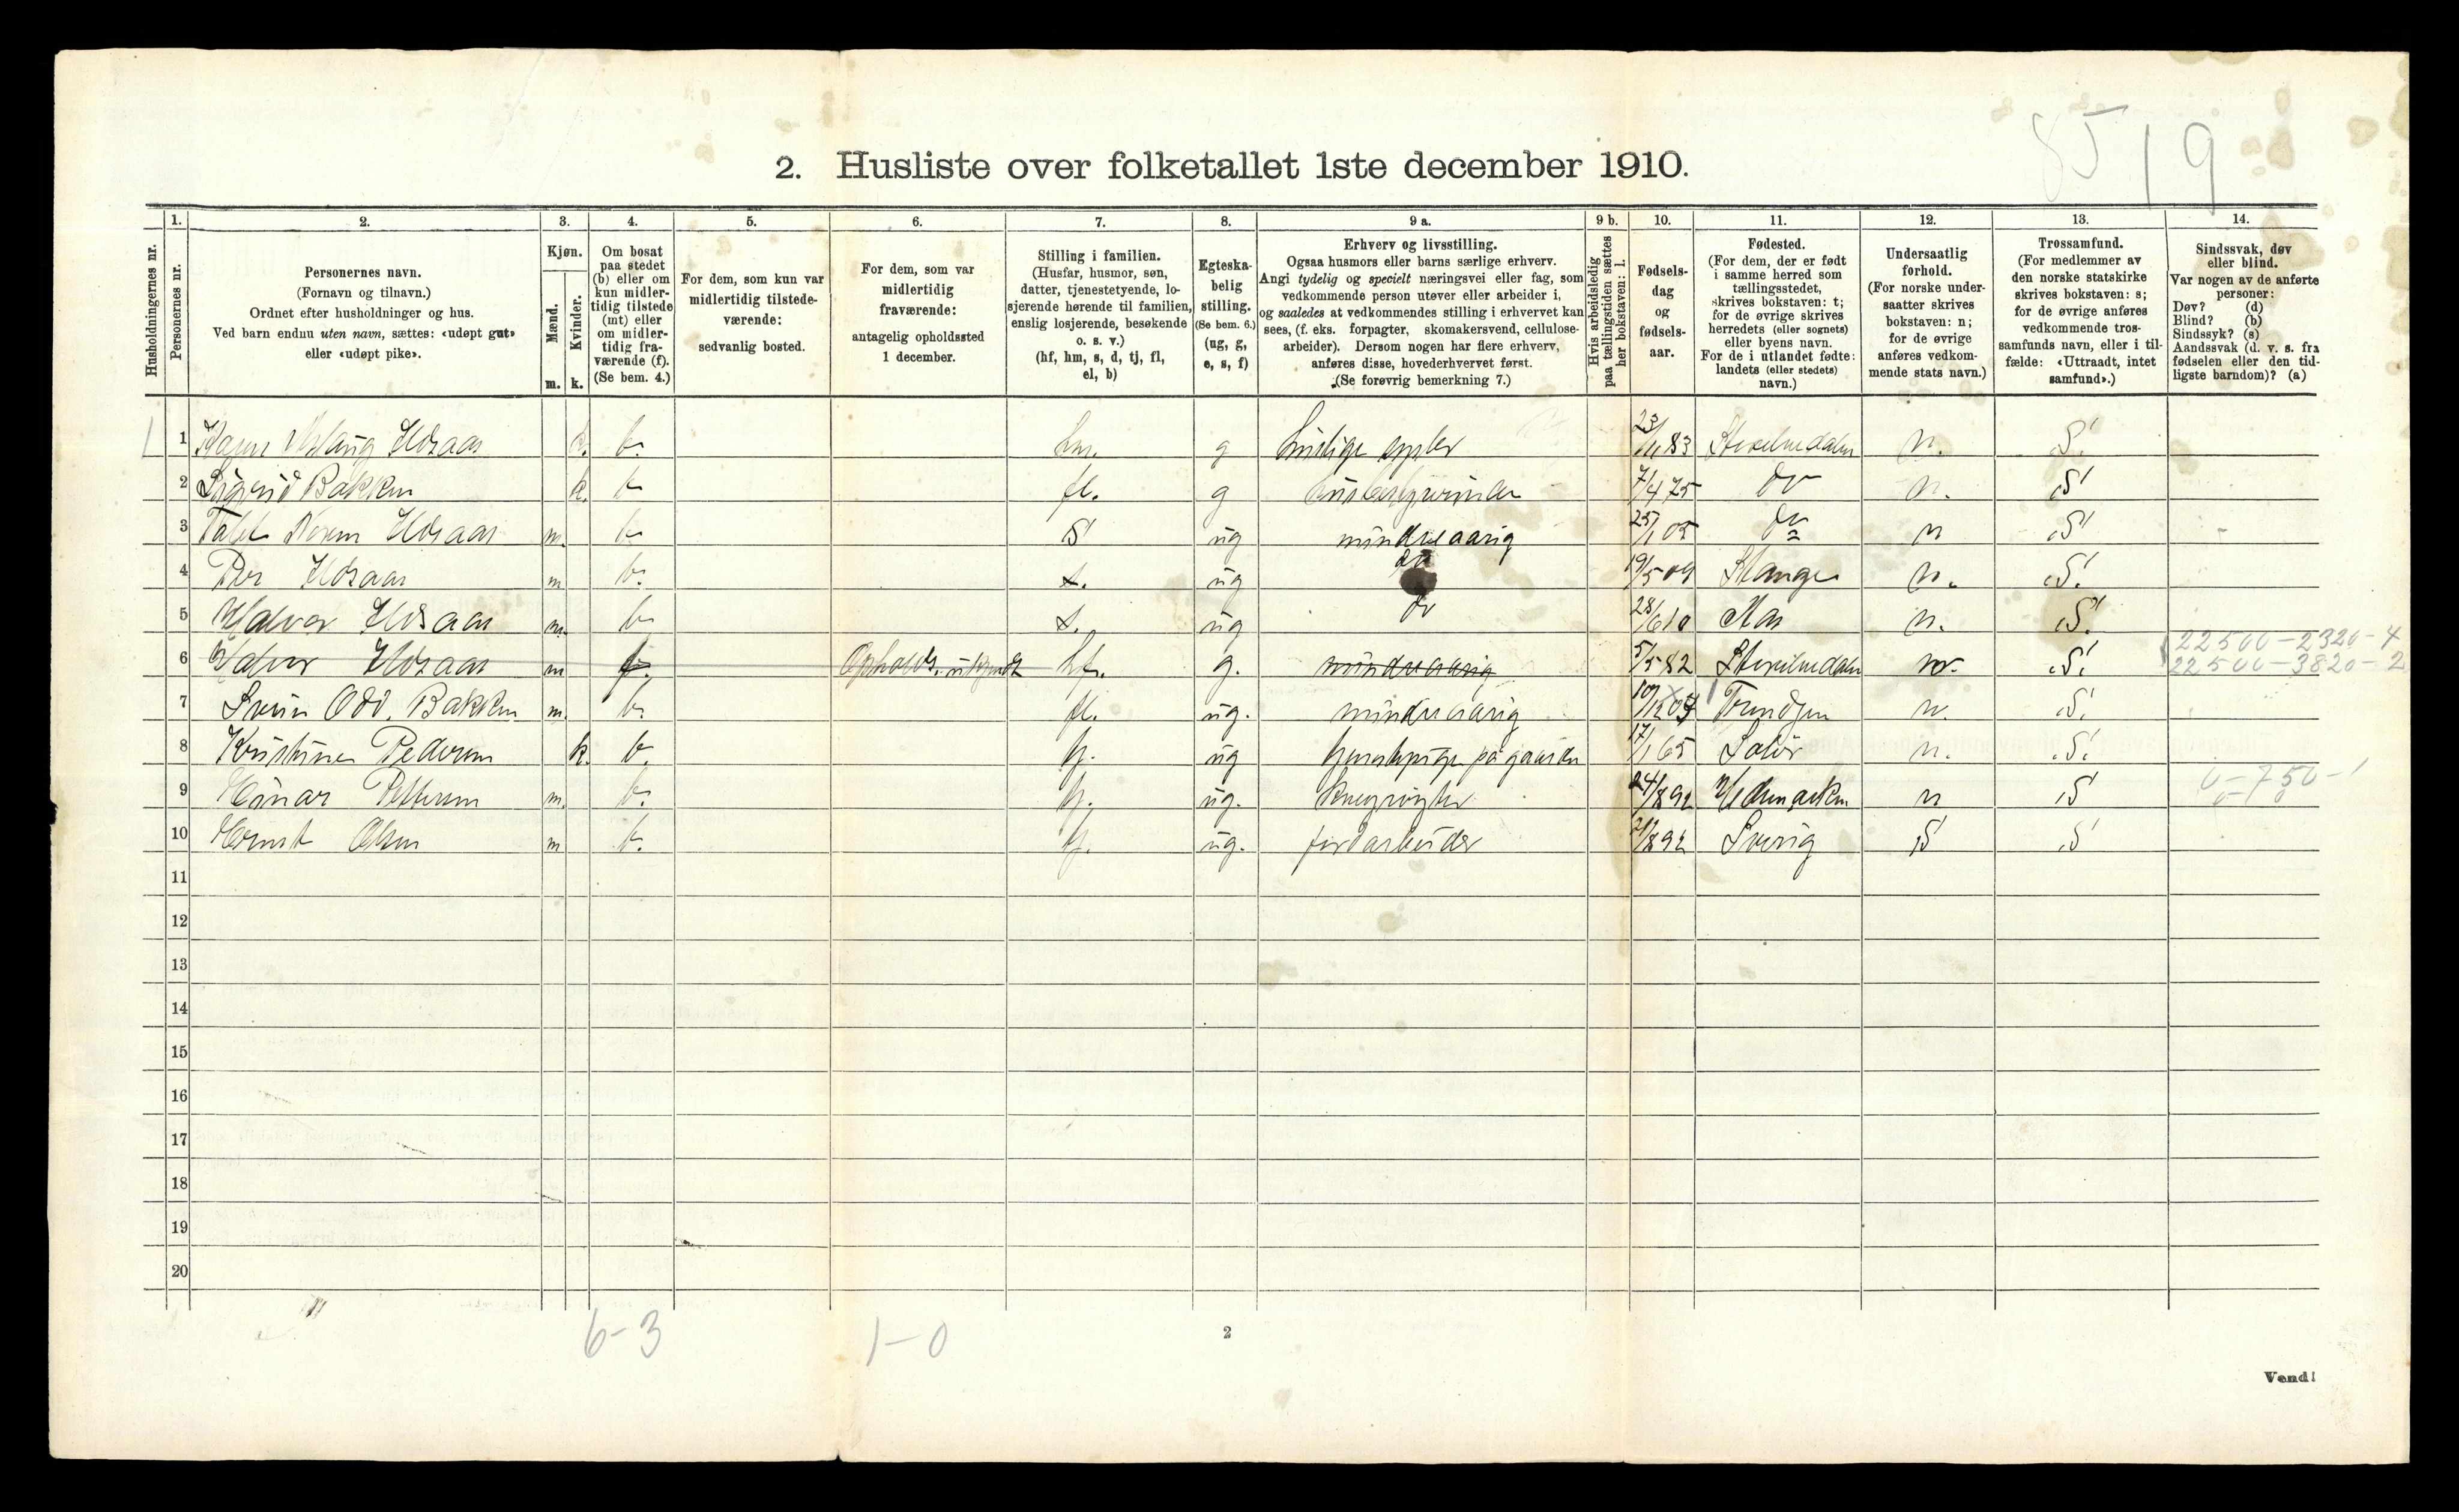 85 19
2. Husliste over folketallet 1ste december 1910.
Husholdningernes nr.
1. Personernes nr.
2. Personernes navn.
(Fornavn og tilnavn.)
Ordnet efter husholdninger og hus.
Ved barn endnu uten navn, sættes: «udøpt gut»
eller «udøpt pike».
3. Kjøn.
Mænd. m.
Kvinder. k.
4. Om bosat
paa stedet
(b) eller om
kun midler-
tidig tilstede
(mt) eller
om midler-
tidig fra-
værende (f).
(Se bem. 4.)
5. For dem, som kun var
midlertidig tilstede-
værende:
sedvanlig bosted.
6. For dem, som var
midlertidig
fraværende:
antagelig opholdssted
1 december.
7. Stilling i familien.
(Husfar, husmor, søn,
datter, tjenestetyende, lo-
sjerende hørende til familien,
enslig losjerende, besøkende
o. s. v.)
(hf, hm, s, d, tj, fl,
el, b)
8. Egteska-
belig
stilling.
(Se bem. 6.)
(ug, g,
e, s, f)
9 a. Erhverv og livsstilling.
Ogsaa husmors eller barns særlige erhverv.
Angi tydelig og specielt næringsvei eller fag, som
vedkommende person utøver eller arbeider i,
og saaledes at vedkommendes stilling i erhvervet kan
sees, (f. eks. forpagter, skomakersvend, cellulose-
arbeider). Dersom nogen har flere erhverv,
anføres disse, hovederhvervet først.
(Se forøvrig bemerkning 7.)
9 b. Hvis arbeidsledig
paa tællingstiden sættes
her bokstaven: l.
10. Fødsels-
dag
og
fødsels-
aar.
11. Fødested.
(For dem, der er født
i samme herred som
tællingsstedet,
skrives bokstaven: t;
for de øvrige skrives
herredets (eller sognets)
eller byens navn.
For de i utlandet fødte:
landets (eller stedets)
navn.)
12. Undersaatlig
forhold.
(For norske under-
saatter skrives
bokstaven: n;
for de øvrige
anføres vedkom-
mende stats navn.)
13. Trossamfund.
(For medlemmer av
den norske statskirke
skrives bokstaven: s;
for de øvrige anføres
vedkommende tros-
samfunds navn, eller i til-
fælde: «Uttraadt, intet
samfund».)
14. Sindssvak, døv
eller blind.
Var nogen av de anførte
personer:
Døv? (d)
Blind? (b)
Sindssyk? (s)
Aandssvak (d. v. s. fra
fødselen eller den tid-
ligste barndom)? (a)
1 1 k. b. hm. g huslige sysler 23/11 83 n. S.
2 Sigrid Bakken k. b fl. g 7/4 75 do n. S
3 m. b S ug mindreaarig 25/1 05 do n S
4 Per m b. s. ug do 19/5 09 Stange n. S.
5 Halvor m. b s. ug do 28/6 10 Aas n. S.
6 Halvor m f. hf. g. mindreaarig 5/5 82 n. S. 22500-2320-4
22500-3820-2
7 Svein Odd. Bakken m. b. fl. ug. mindreaarig 10/12 n. S.
8 Kristine Pedersen k. b. tj. ug på gaarden 17/1 65 Solør n. S.
9 Einar Pettersen m. b. tj. ug. 24/8 92 Hedmarken n S 0-750-1
10 Ernst Olsen m b. tj. ug. jordarbeider 21/8 92 Sverig S S
11
12
13
14
15
16
17
18
19
20
6-3 1-0
2
Vend!